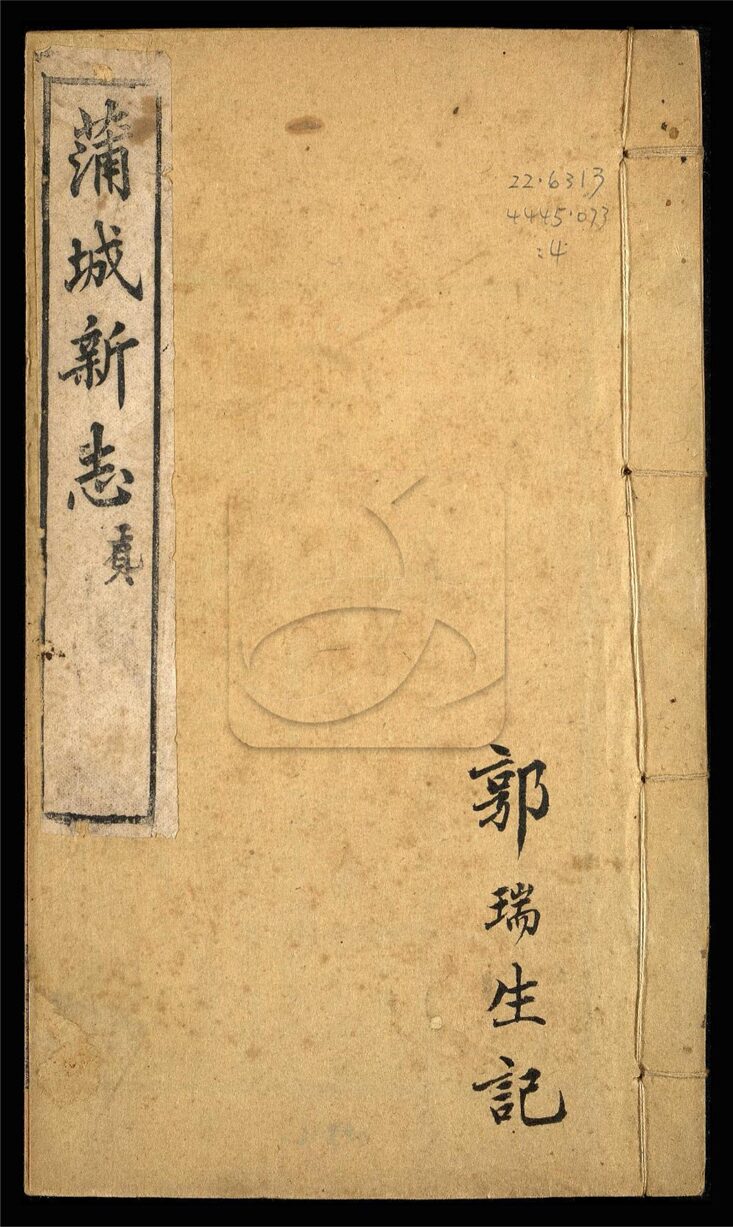 蒲城新志 貞
22·6313
4445·073
:4
郭瑞生記